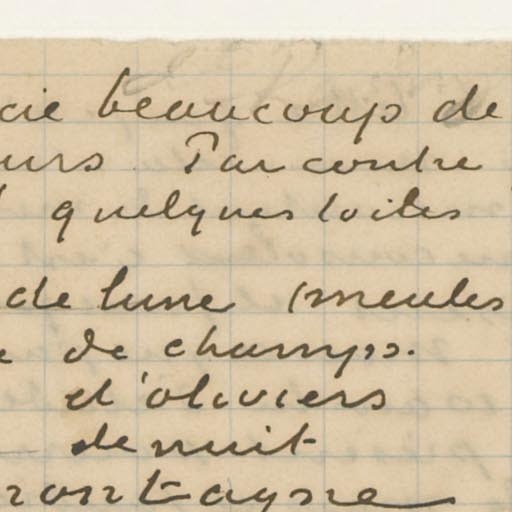 cie beaucoup de
urs Par contre
quelques toiles
de lune (meules
e de champs.
d'oliviers
de nuit
montagne